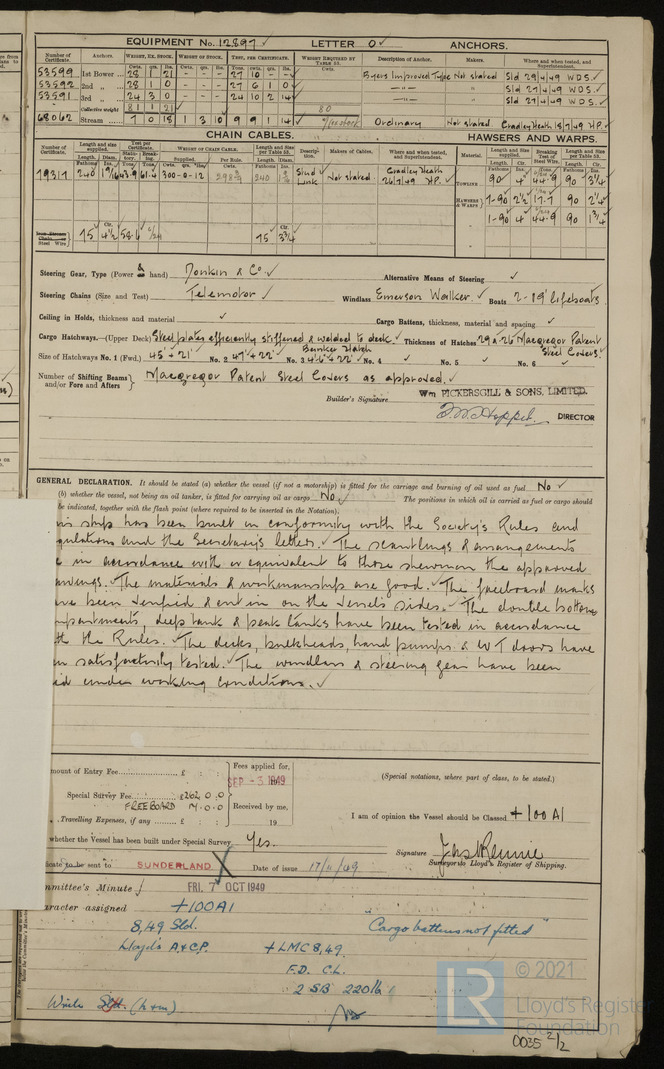 EQUIPMENT No. 12897 LETTER O ANCHORS.
Number of Certificate. Anchors. WEIGHT, EX. STOCK. WEIGHT OF STOCK. TEST, PER CERTIFICATE. WEIGHT REQUIRED BY TABLE 53. Description of Anchor. Makers. Where and when tested, and Superintendent.
53599 1st Bower 28 1 21 27 10 - - Byers Improved Type Not stated Sld 29/4/49 W.D.S.
53592 2nd " 28 1 0 27 6 1 0 -"- " Sld 27/4/49 W.D.S.
53591 3rd " 24 3 0 24 10 2 14 -"- " Sld 27/4/49 W.D.S.
Collective weight 81 1 21 80
68062 Stream 7 0 18 1 3 10 9 9 1 14 Ordinary Not stated Cradley Heath 18/7/49 H.P.
CHAIN CABLES. HAWSERS AND WARPS.
Number of Certificate. Length and size supplied. Test per Certificate. WEIGHT OF CHAIN CABLE. Length and Size per Table 53. Description. Makers of Cables. Where and when tested, and Superintendent. Material. Length and Size supplied. Breaking Test of Steel Wire. Length and Size per Table 53.
19317 240 1 11/16 43.9 61.4 300-0-12 240 Stud Link Not stated Cradley Heath 26/7/49 H.P. TOWLINE 90 4 44.9 90 3 1/4
HAWSERS & WARPS 1-90 2 1/2 17.7 90 2 1/4
1-90 4 44.9 90 1 3/4
Steel Wire 75 4 1/2 58.6 75 3 3/4
Steering Gear, Type (Power & hand) Donkin & Co. Alternative Means of Steering
Steering Chains (Size and Test) Telemotor Windlass Emerson Walker. Boats 2-19' lifeboats
Ceiling in Holds, thickness and material Cargo Battens, thickness, material and spacing
Cargo Hatchways.—(Upper Deck) Steel plates efficiently stiffened & welded to deck. Thickness of Hatches Macgregor Patent Steel Covers.
Bunker Hatch
Size of Hatchways No. 1 (Fwd.) 45 × 21' No. 2 47' × 22' No. 3 No. 4 No. 5 No. 6
Number of Shifting Beams and/or Fore and Afters Macgregor Patent Steel Covers as approved.
Builder's Signature Wm PICKERSGILL & SONS, LIMITED.
DIRECTOR
GENERAL DECLARATION. It should be stated (a) whether the vessel (if not a motorship) is fitted for the carriage and burning of oil used as fuel No
(b) whether the vessel, not being an oil tanker, is fitted for carrying oil as cargo No The positions in which oil is carried as fuel or cargo should
be indicated, together with the flash point (where required to be inserted in the Notation).
is ship has been built in conformity with the Society's Rules and
gulations and the Secretary's letters. The scantlings & arrangements
in accordance with or equivalent to those shewn on the approved
awings. The materials & workmanship are good. The freeboard marks
ave been verified & cut in on the vessel's sides. The double bottom
mpartments, deep tank & peak tanks have been tested in accordance
th the Rules. The decks, bulkheads, hand pumps & W T doors have
en satisfactorily tested. The windlass & steering gear have been
ied under working conditions.
mount of Entry Fee £ : : Fees applied for,
SEP -3 1949
(Special notations, where part of class, to be stated.)
Special Survey Fee £262.0.0
FREEBOARD 14.0.0 Received by me,
Travelling Expenses, if any £ : : 19
I am of opinion the Vessel should be Classed +100A1
whether the Vessel has been built under Special Survey Yes.
Signature Jas Rennie
Surveyor to Lloyd's Register of Shipping.
icate to be sent to SUNDERLAND Date of issue 17/11/49
mmittee's Minute FRI. 7 OCT 1949
aracter assigned +100A1
8,49 Sld. "Cargo battens not fitted"
Lloyd's A & C.P. +LMC 8,49.
F.D. C.L.
2 SB 220 lb
Write Sld. (h+m)
LR © 2021
Lloyd's Register
Foundation
0035 2/2